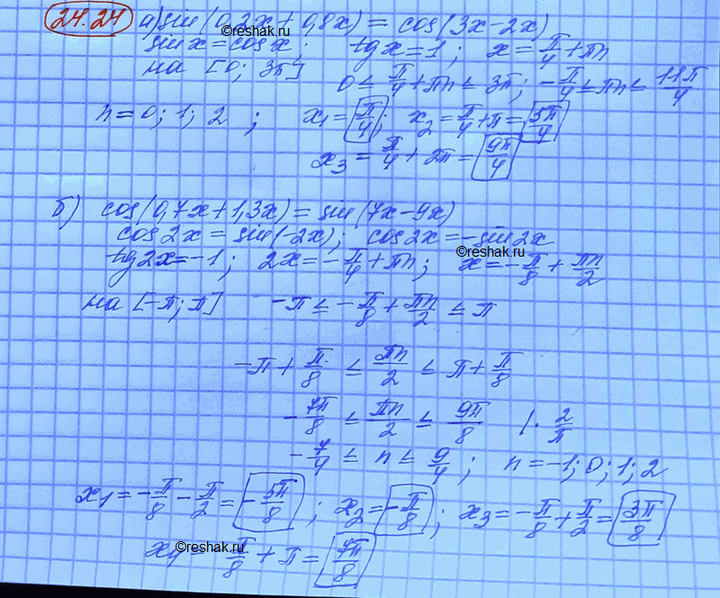 24.24 а) sin(0,2x + 0,8x) = cos(3x-2x)
sinx = cosx; tgx = 1; x = π/4 + πn
на [0; 3π] 0 ≤ π/4 + πn ≤ 3π; -π/4 ≤ πn ≤ 11π/4
n = 0; 1; 2 ; x₁ = π/4; x₂ = π/4 + π = 5π/4
x₃ = π/4 + 2π = 9π/4
б) cos(0,7x + 1,3x) = sin(7x-9x)
cos2x = sin(-2x); cos2x = -sin2x
tg2x = -1; 2x = -π/4 + πn; x = -π/8 + πn/2
на [-π; π] -π ≤ -π/8 + πn/2 ≤ π
-π + π/8 ≤ πn/2 ≤ π + π/8
-7π/8 ≤ πn/2 ≤ 9π/8 | · 2/π
-7/4 ≤ n ≤ 9/4; n = -1; 0; 1; 2
x₁ = -π/8 - π/2 = -5π/8; x₂ = -π/8; x₃ = -π/8 + π/2 = 3π/8
x₄ = -π/8 + π = 7π/8
©reshak.ru
©reshak.ru
©reshak.ru